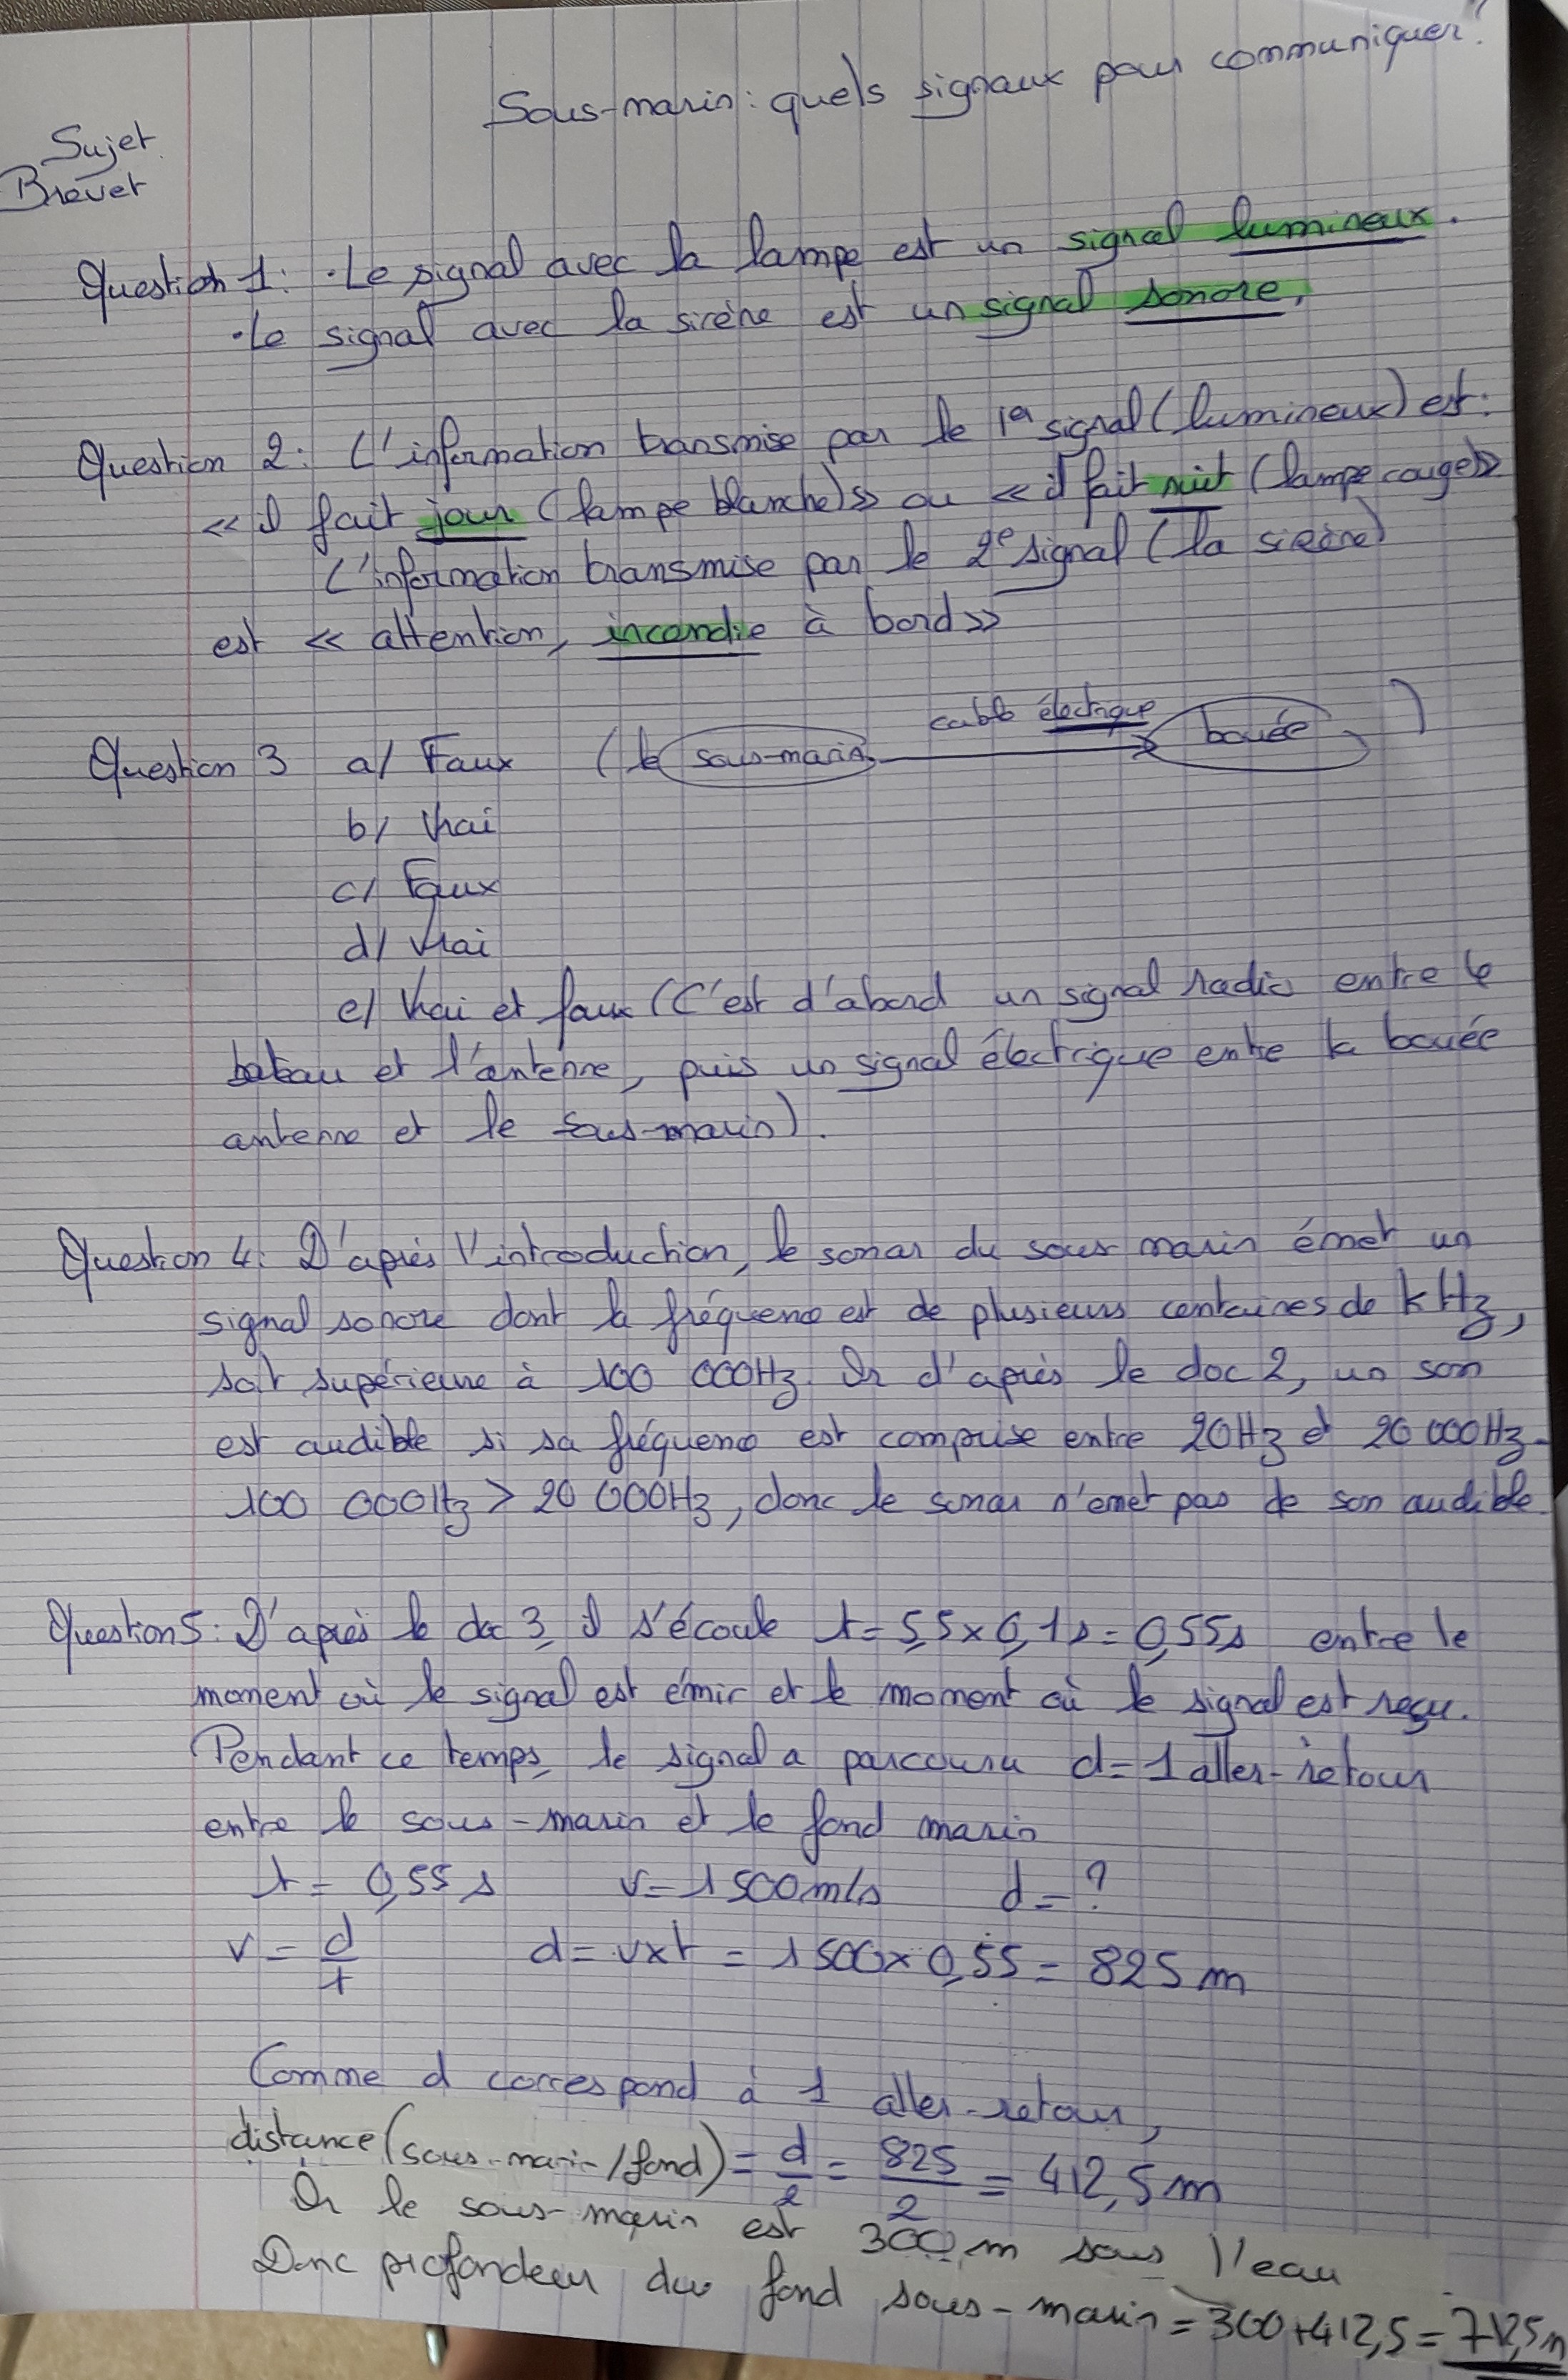 Sous-marin : quels signaux pour communiquer ?
Sujet
Brevet
Question 1 : • Le signal avec la lampe est un signal lumineux.
• Le signal avec la sirène est un signal sonore.
Question 2 : L'information transmise par le 1er signal (lumineux) est :
« il fait jour (lampe blanche) » ou « il fait nuit (lampe rouge) »
L'information transmise par le 2e signal (la sirène)
est « attention, incendie à bord »
Question 3 a/ Faux (le sous-marin cable électrique bouée )
b/ Vrai
c/ Faux
d/ Vrai
e/ Vrai et faux (C'est d'abord un signal radio entre le
bateau et l'antenne, puis un signal électrique entre la bouée
antenne et le sous-marin).
Question 4 : D'après l'introduction, le sonar du sous marin émet un
signal sonore dont la fréquence est de plusieurs centaines de kHz,
soit supérieure à 100 000Hz. Or d'après le doc 2, un son
est audible si sa fréquence est comprise entre 20Hz et 20 000Hz.
100 000Hz > 20 000Hz, donc le sonar n'émet pas de son audible.
Question 5 : D'après le doc 3, il s'écoule t = 5,5 x 0,1 s = 0,55s entre le
moment où le signal est émis et le moment où le signal est reçu.
Pendant ce temps, le signal a parcouru d = 1 aller-retour
entre le sous-marin et le fond marin
t = 0,55 s v = 1 500 m/s d = ?
v = d/t d = v x t = 1 500 x 0,55 = 825 m
Comme d correspond à 1 aller-retour,
distance (sous-marin/fond) = d/2 = 825/2 = 412,5 m
Or le sous-marin est 300 m sous l'eau
Donc profondeur du fond sous-marin = 300 + 412,5 = 712,5 m